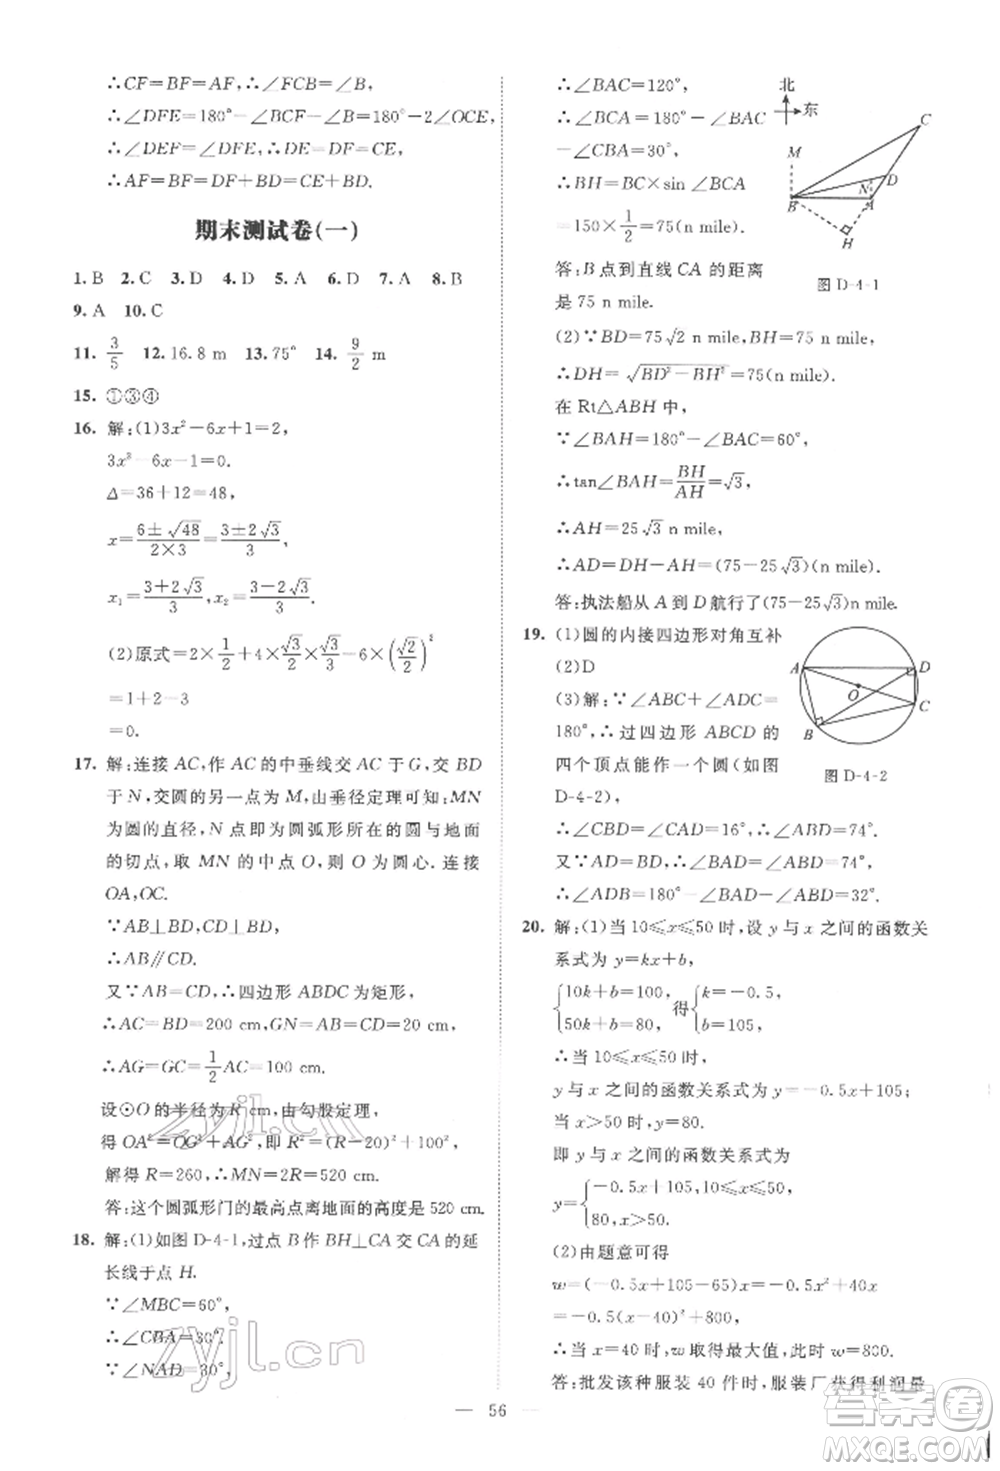 ∴CF=BF=AF,∴∠FCB=∠B,
∴∠DFE=180°-∠BFC-∠B=180°-2∠OCE,
∴∠DEF=∠DFE,∴DE=DF=CE,
∴AF=BF=DF+BD=CE+BD.
期末测试卷(一)
1.B 2.C 3.D 4.D 5.A 6.D 7.D 8.B
9.A 10.C
11. 3/5 12.16.8 m 13.75° 14. 9/2 m
15. ①③④
16. 解:(1)3x²-6x+1=2,
3x²-6x-1=0.
Δ=36+12=48,
x=(6±√48)/(2×3)=(3±2√3)/3,
x₁=(3+2√3)/3,x₂=(3-2√3)/3.
(2)原式=2×1/2+4×√3/3×√3/2-6×(√2/2)²
=1+2-3
=0.
17. 解:连接 AC,作 AC 的中垂线交 AC 于 G,交 BD
于 N,交圆的另一点为 M,由垂径定理可知:MN
为圆的直径,N 点即为圆弧形所在的圆与地面
的切点,取 MN 的中点 O,则 O 为圆心.连接
OA,OC.
∵AB⊥BD,CD⊥BD,
∴AB∥CD.
又∵AB=CD,∴四边形 ABDC 为矩形,
∴AC=BD=200 cm,GN=AB=CD=20 cm,
∴AG=GC=1/2AC=100 cm.
设⊙O 的半径为 R cm,由勾股定理,
得 OA²=OG²+AG²,即 R²=(R-20)²+100²,
解得 R=260,∴MN=2R=520 cm.
答:这个圆弧形门的最高点离地面的高度是 520 cm.
18. 解:(1)如图 D-4-1,过点 B 作 BH⊥CA 交 CA 的延
长线于点 H.
∵∠MBC=60°,
∴∠CBA=30°.
∵∠NAD=30°,
∴∠BAC=120°,
∴∠BCA=180°-∠BAC
-∠CBA=30°,
∴BH=BC×sin ∠BCA
=150×1/2=75(n mile).
答:B 点到直线 CA 的距离
是 75 n mile.
北
东
M
C
D
N
B
A
H
图 D-4-1
(2)∵BD=75√2 n mile,BH=75 n mile,
∴DH=√(BD²-BH²)=75(n mile).
在 Rt△ABH 中,
∵∠BAH=180°-∠BAC=60°,
∴tan∠BAH=BH/AH=√3,
∴AH=25√3 n mile,
∴AD=DH-AH=(75-25√3)(n mile).
答:执法船从 A 到 D 航行了(75-25√3)n mile.
19. (1)圆的内接四边形对角互补
(2)D
(3)解:∵∠ABC+∠ADC=
180°,∴过四边形 ABCD 的
四个顶点能作一个圆(如图
D-4-2),
A
D
O
C
B
图 D-4-2
∴∠CBD=∠CAD=16°,∴∠ABD=74°.
又∵∠BAD=∠ABD=74°,
∴∠ADB=180°-∠BAD-∠ABD=32°.
20. 解:(1)当 10≤x≤50 时,设 y 与 x 之间的函数关
系式为 y=kx+b,
{10k+b=100, 得{k=-0.5,
{50k+b=80, {b=105,
∴当 10≤x≤50 时,
y 与 x 之间的函数关系式为 y=-0.5x+105;
当 x>50 时,y=80.
即 y 与 x 之间的函数关系式为
y={-0.5x+105,10≤x≤50,
{80,x>50.
(2)由题意可得
w=(-0.5x+105-65)x=-0.5x²+40x
=-0.5(x-40)²+800,
∴当 x=40 时,w 取得最大值,此时 w=800.
答:批发该种服装 40 件时,服装厂获得利润最
56
zyjl.cn
zyjl.cn
答案圈
MXQE.COM